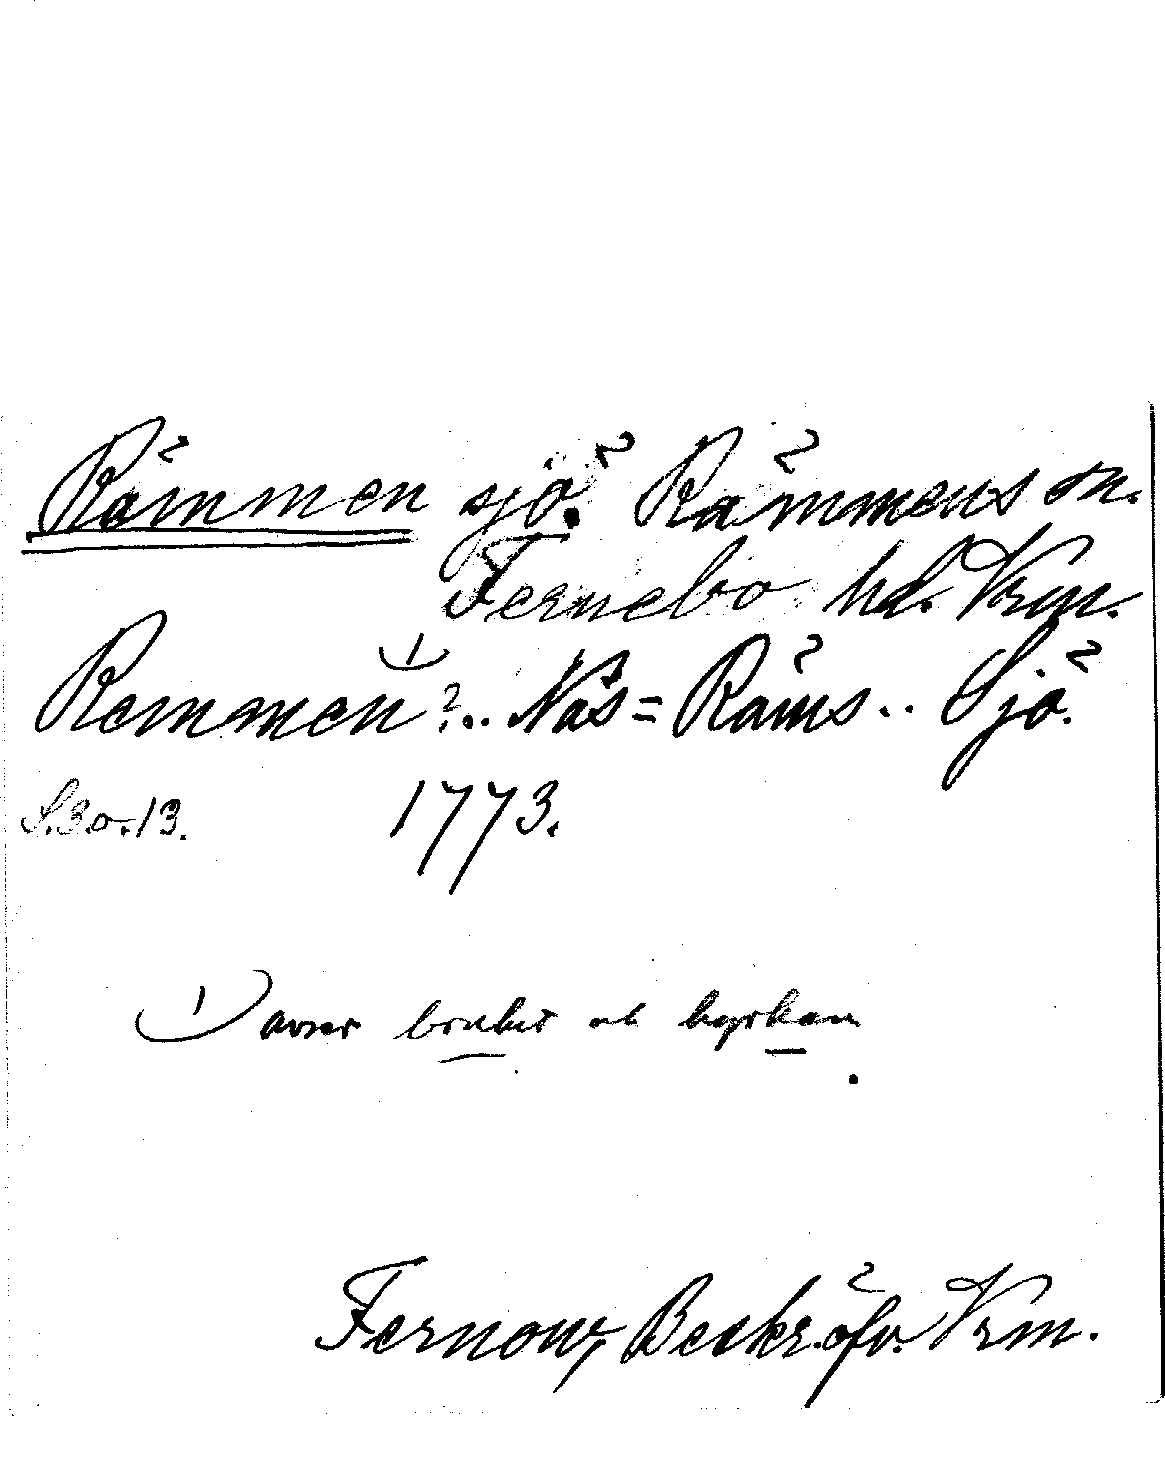 Rämmen sjö. Rämmens sn.
Fernebo hd. Vrm.
Remmen 1) ?.. Näs = Räms .. Sjö.
S. 30. 13. 1773.
1) avser bruket och kyrkan
Fernow, Beskr. öfv. Vrm.